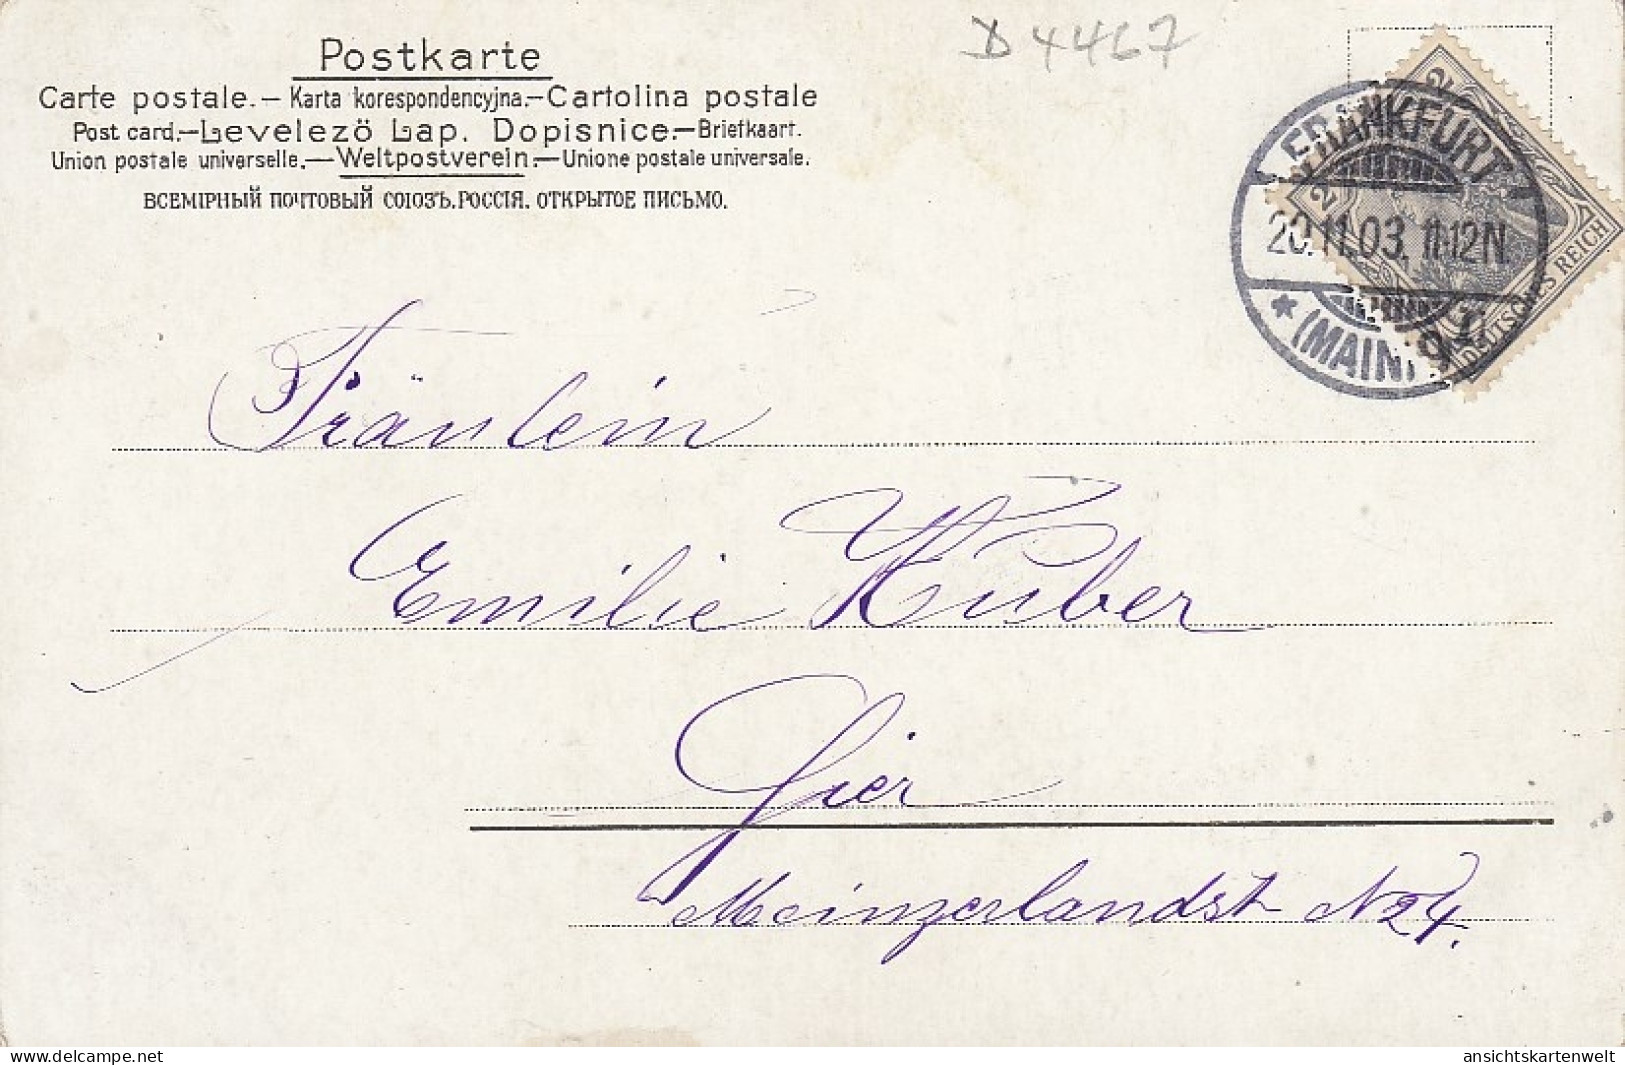 Postkarte
D 4467
Carte postale. – Karta korespondencyjna. – Cartolina postale
Post card. – Levelezö Lap. Dopisnice – Briefkaart.
Union postale universelle. – Weltpostverein – Unione postale universale.
ВСЕМІРНЫЙ ПОЧТОВЫЙ СОЮЗЪ. РОССІЯ. ОТКРЫТОЕ ПИСЬМО.
FRANKFURT
20.11.03. 11-12N.
* (MAIN) 9
2
2
DEUTSCHES REICH
Fräulein
Emilie Huber
Hier
Mainzerlandst N24.
www.delcampe.net
ansichtskartenwelt